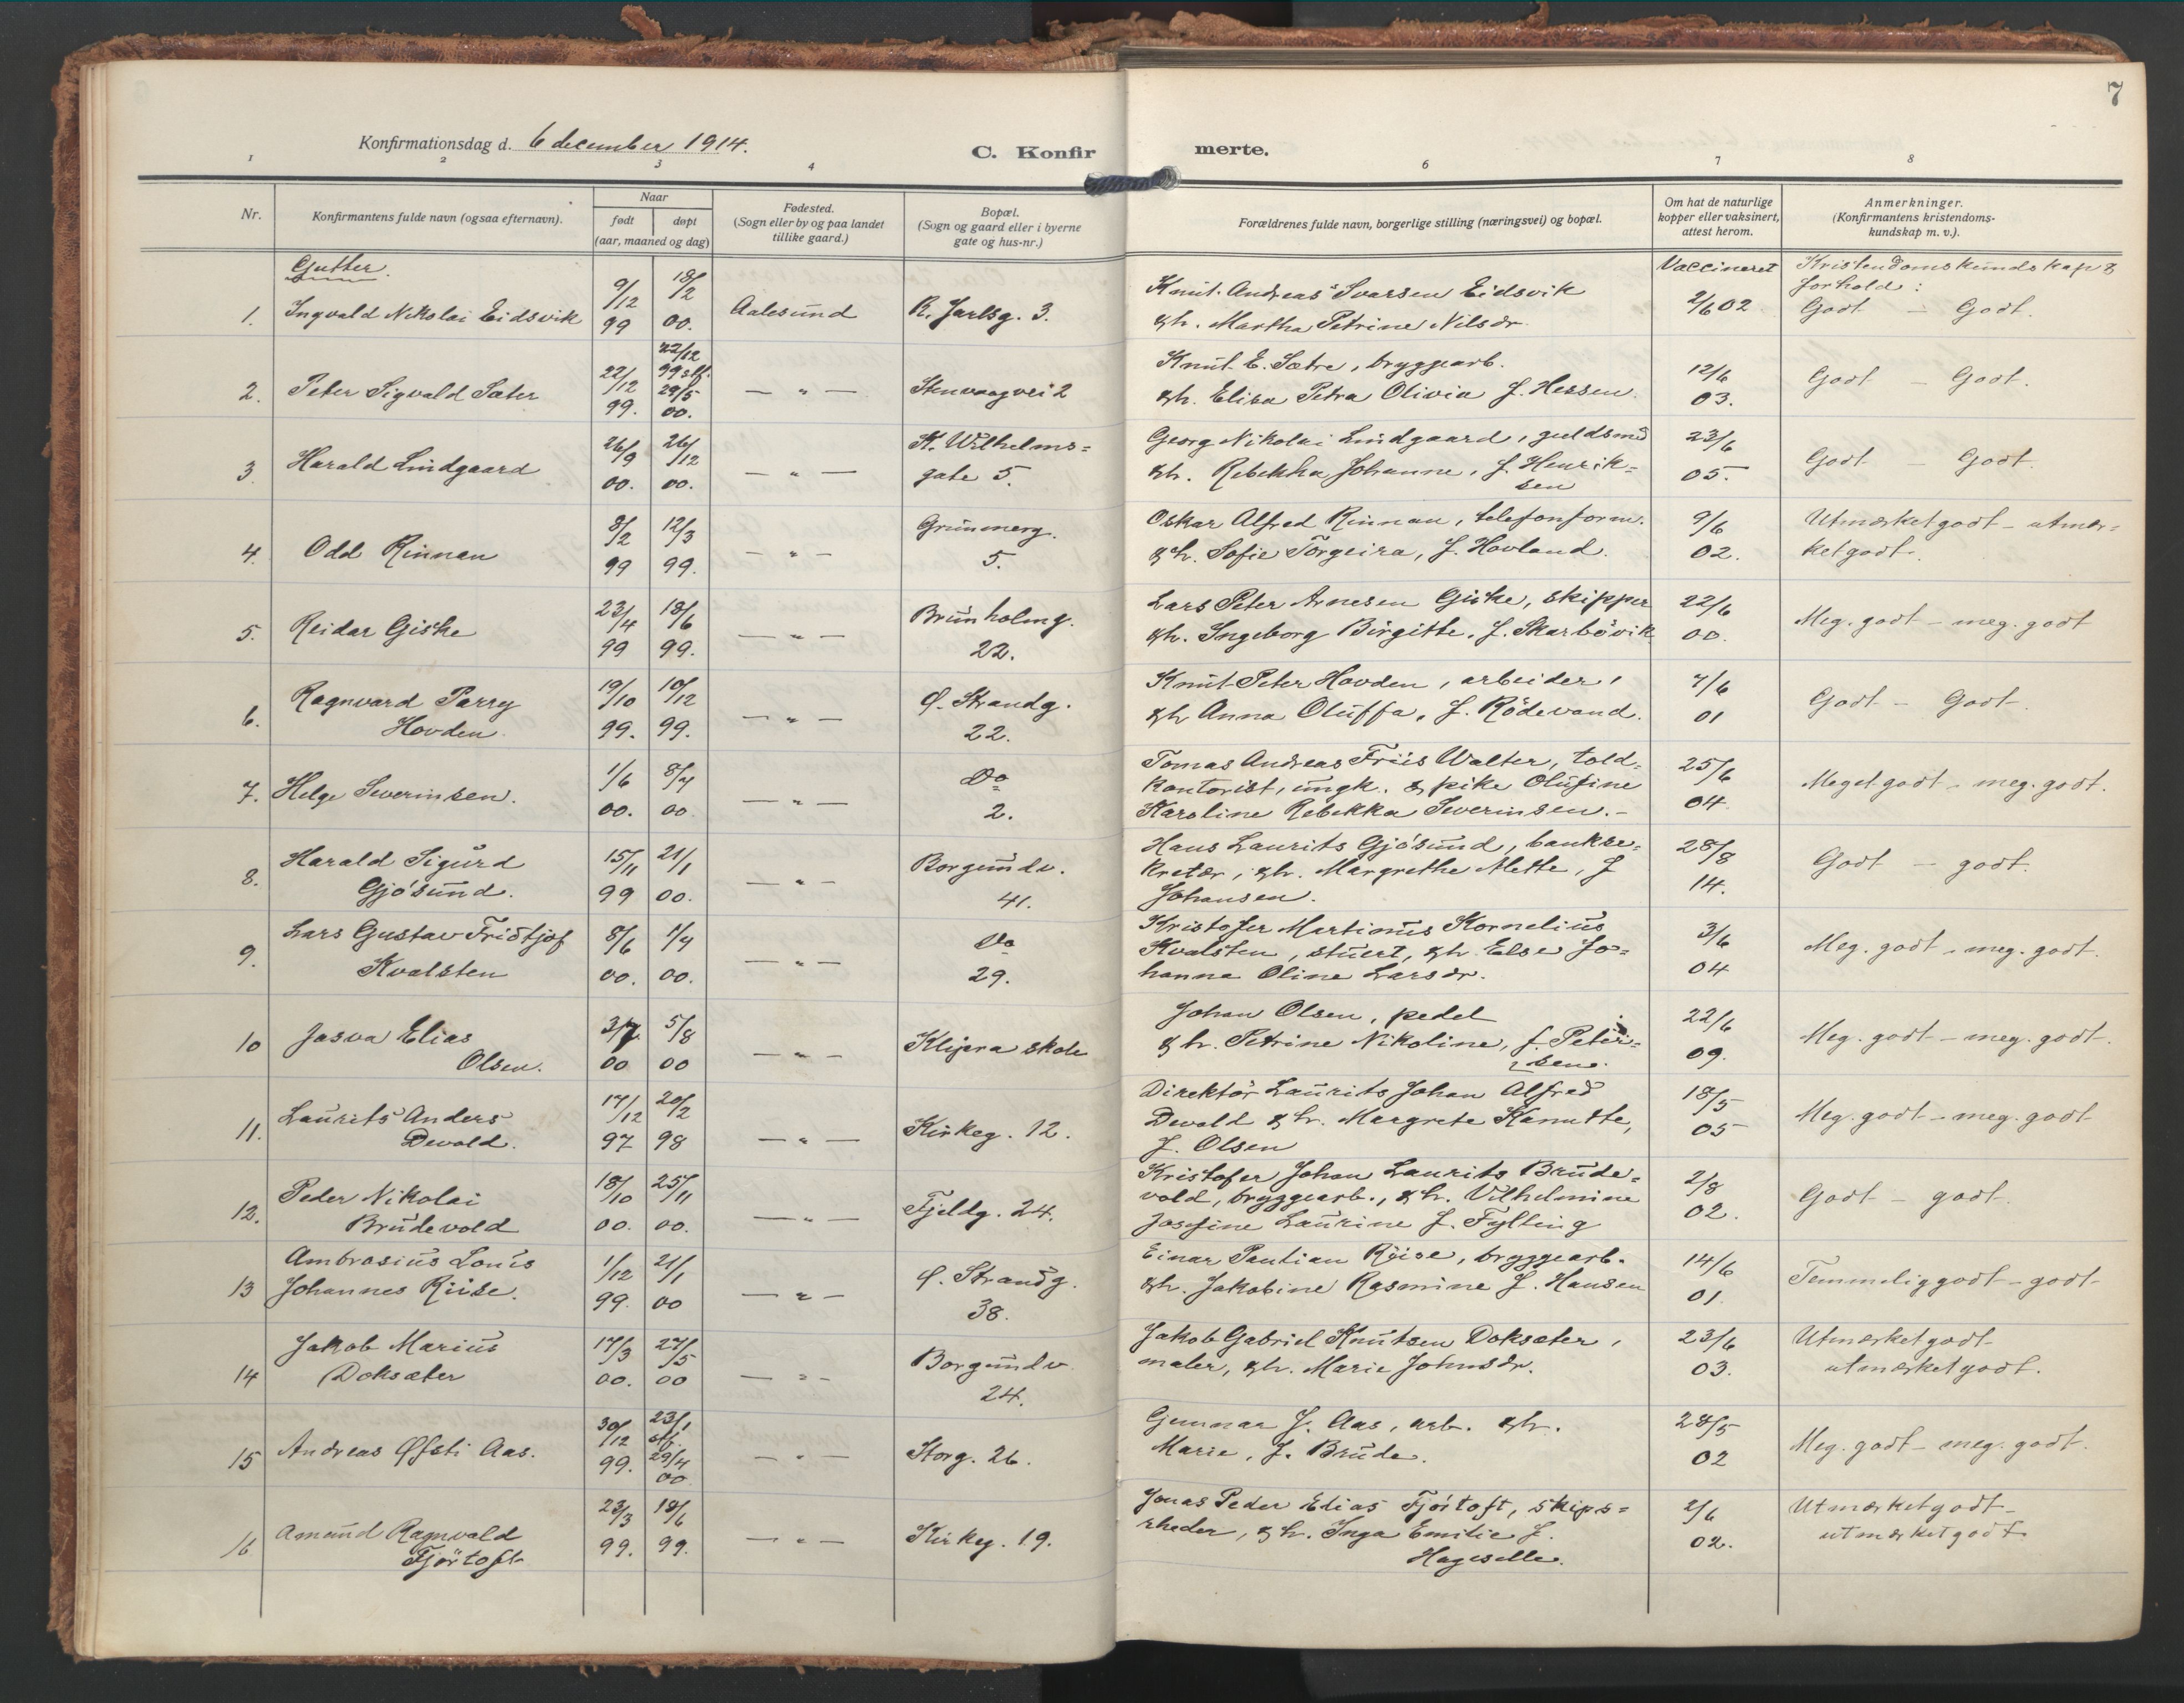 7
Konfirmationsdag d. 6 december 1914.
C. Konfirmerte.
1 2 3 4 6 7 8
Nr.
Konfirmantens fulde navn (ogsaa efternavn).
Naar
født døpt
(aar, maaned og dag)
Fødested.
(Sogn eller by og paa landet
tillike gaard.)
Bopæl.
(Sogn og gaard eller i byerne
gate og hus-nr.)
Forældrenes fulde navn, borgerlige stilling (næringsvei) og bopæl.
Om hat de naturlige
kopper eller vaksinert,
attest herom.
Anmerkninger.
(Konfirmantens kristendoms-
kundskap m. v.).
Gutter.
Vaccineret
Kristendomskundskap &
forhold:
1. Ingvald Nikolai Eidsvik
9/12 99
18/2 00.
Aalesund
R. Jarlsg. 3.
Knut Andreas Ivarsen Eidsvik
& h. Martha Petrine Nilsdr.
2/6 02
Godt – Godt.
2. Peter Sigvald Sæter
22/12 99.
22/12 99 stf. 29/5 00.
— " —
Stenvaagvei 2
Knut E. Sætre, bryggearb.
& h. Elisa Petra Olivia f. Hessen.
12/6 03.
Godt – Godt.
3. Harald Lindgaard
26/9 00.
26/12 00.
— " —
K. Wilhelms=
gate 5.
Georg Nikolai Lindgaard, guldsmed
& h. Rebekka Johanne, f. Henrik=
sen
23/6 05.
Godt – Godt.
4. Odd Rinnan
8/2 99
12/3 99.
— " —
Grimmerg.
5.
Oskar Alfred Rinnan, telefonform.
& h. Sofie Torgeira, f. Hovland.
9/6 02.
Utmerket godt – utmer=
ket godt.
5. Reidar Giske
23/4 99
18/6 99.
— " —
Brunholmg.
22.
Lars Peter Arnesen Giske, skipper
& h. Ingeborg Birgitte, f. Skarbövik
22/6 00.
Meg. godt – meg. godt
6. Ragnvard Parry
Hovden.
19/10 99.
10/12 99.
— " —
Ø. Strandg.
22.
Knut Peter Hovden, arbeider,
& h Anna Oluffa, f. Rödevand.
7/6 01
Godt – Godt.
7. Helge Severinsen.
1/6 00.
8/7 00
— " —
Do
2.
Tomas Andreas Friis Walter, told=
kontorist, ungk. & pike Olufine
Karoline Rebekka Severinsen.–
25/6 04.
Meget godt – meg. godt.
8. Harald Sigurd
Gjösund.
15/11 99
21/1 00.
— " —
Borgundv.
41.
Hans Laurits Gjösund, bankse=
kretær, & h. Margrethe Mette, f
Johansen.
28/8 14.
Godt – godt.
9. Lars Gustav Fridtjof
Kvalsten
8/6 00.
1/7 00.
— " —
Do
29.
Kristofer Martinus Kornelius
Kvalsten, stuert, & h. Else Jo=
hanna Oline Larsdr.
3/6 04
Meg. godt – meg. godt.
10 Jasva Elias
Olsen.
3/7 00
5/8 00
— " —
Klipra skole
Johan Olsen, pedel
& h. Petrine Nikoline, f. Peter=
sen.
22/6 09.
Meg. godt – meg. godt.
11. Laurits Anders
Devold.
17/12 97
20/2 98
— " —
Kirkeg. 12.
Direktör Laurits Johan Alfred
Devold & h. Margrete Kanutte,
f. Olsen
18/5 05
Meg. godt – meg. godt
12. Peder Nikolai
Brudevold
18/10 00.
25/11 00.
— " —
Fjeldg. 24.
Kristofer Johan Laurits Brude=
vold, bryggearb., & h. Vilhelmine
Josefine Laurine f. Fylling
2/8 02.
Godt – godt.
13 Ambrosius Louis
Johannes Riise.
1/12 99.
21/1 00
— " —
Ø. Strandg.
38.
Einar Paulian Riise, bryggearb.
& h. Jakobine Rasmine f. Hansen
14/6 01.
Temmelig godt – godt
14 Jakob Marius
Doksæter
17/3 00.
27/5 00
— " —
Borgundv.
24.
Jakob Gabriel Knutsen Doksæter,
maler, & h. Marie Johnsdr.
23/6 03.
Utmerket godt
utmerket godt.
15 Andreas Øfsti Aas.
30/12 99.
23/1 stf. 29/4 00
— " —
Storg. 26.
Gunnar J. Aas, arb. & h.
Marie, f. Brude.
28/5 02
Meg. godt – meg. godt.
16 Amund Ragnvald
Fjörtoft
23/3 99.
18/6 99.
— " —
Kirkeg. 19.
Jonas Peder Elias Fjörtoft, skips=
rheder, & h. Inga Emilie f.
Hageselle.
2/6 02.
Utmerket godt –
utmerket godt